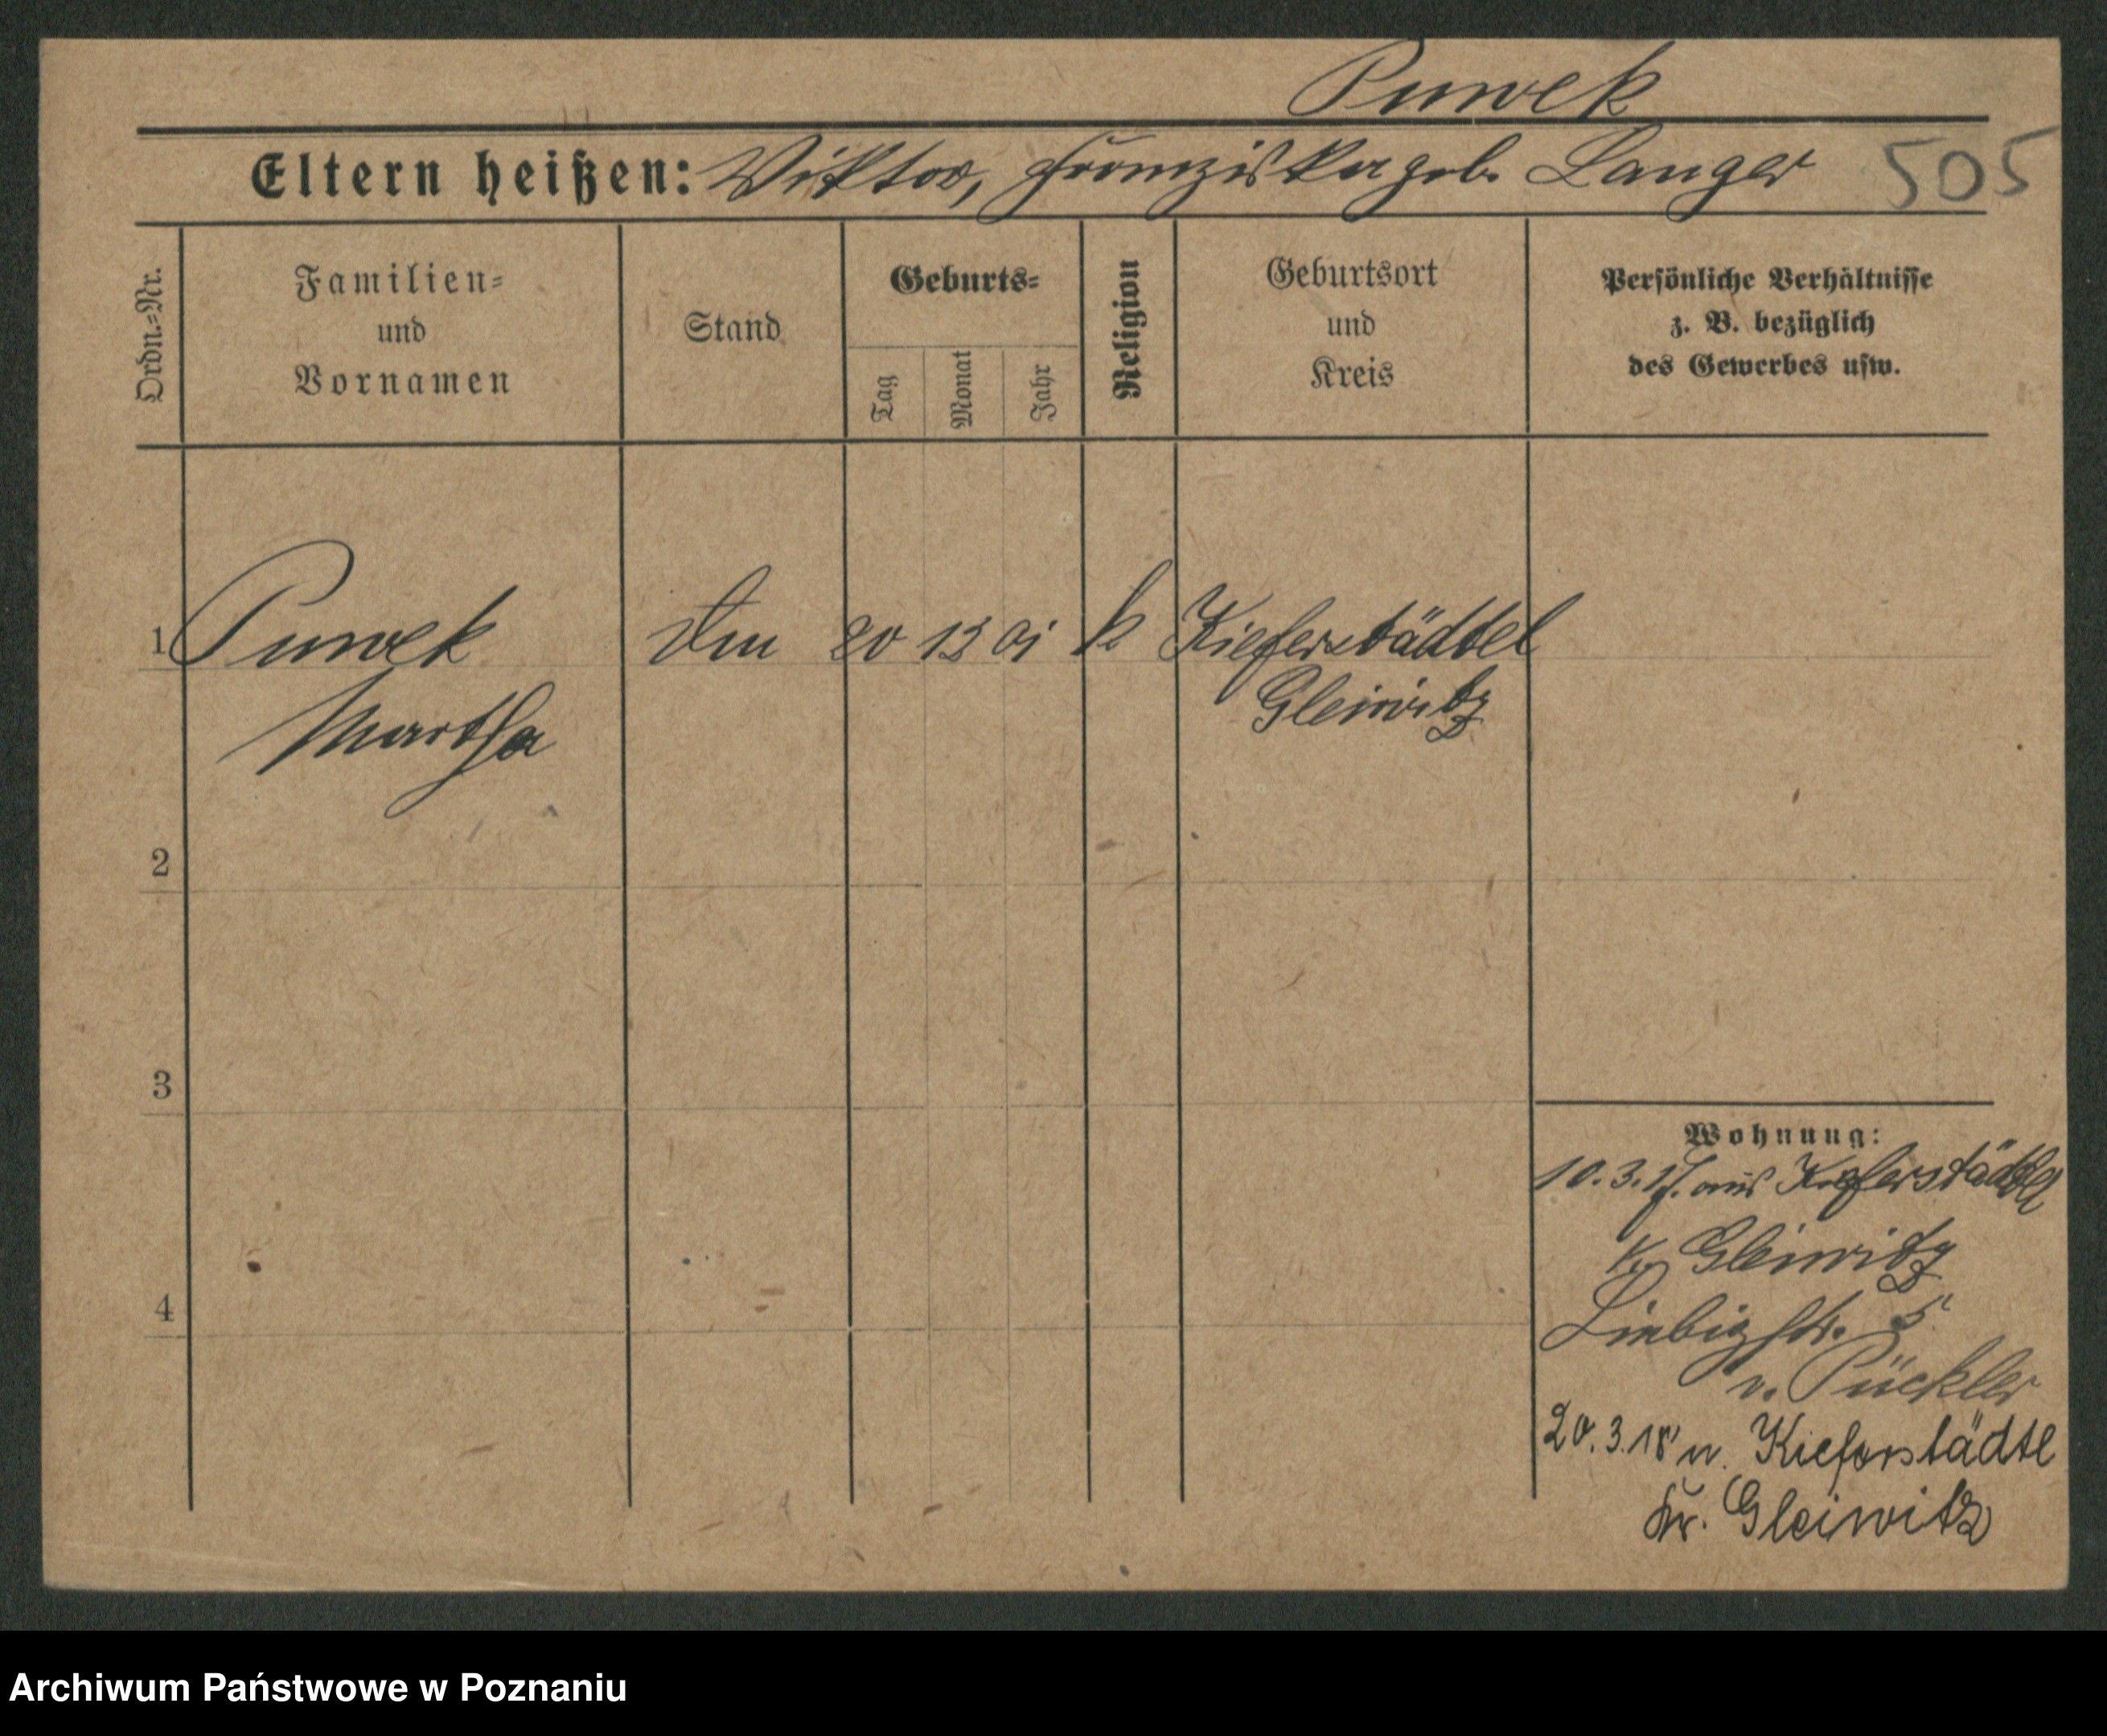 Puwek
Eltern heißen: Viktor, Franziska geb. Langer 505
Ordn.-Nr.
Familien-
und
Vornamen
Stand
Geburts-
Tag
Monat
Jahr
Religion
Geburtsort
und
Kreis
Persönliche Verhältnisse
z. B. bezüglich
des Gewerbes usw.
1 Puwek 20 12 01 k Kieferstädtel
Martha Gleiwitz
2
3
4
Wohnung:
10.3.17. aus Kieferstädtel
Kr. Gleiwitz
Liebigstr. 5
v. Pückler
20.3.18 n. Kieferstädtl
Kr. Gleiwitz
Archiwum Państwowe w Poznaniu